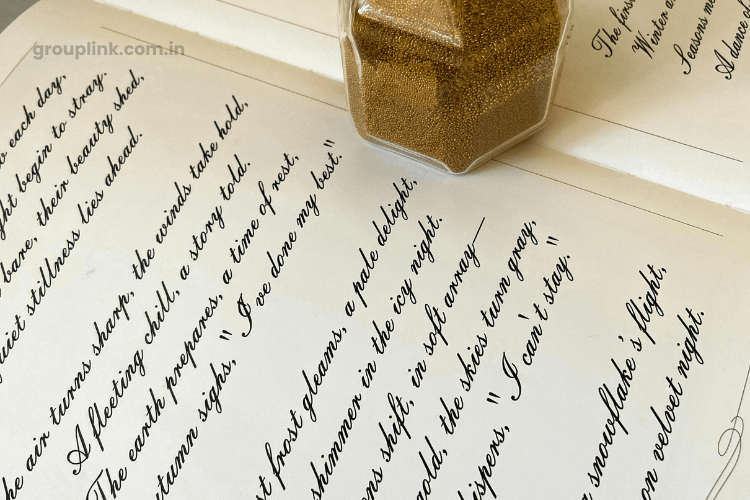 grouplink.com.in
each day,
begin to stray.
bare, their beauty shed,
stillness lies ahead.
air turns sharp, the winds take hold,
A fleeting chill, a story told.
The earth prepares, a time of rest,
sighs, "I've done my best."
frost gleams, a pale delight,
shimmer in the icy night.
shift, in soft array—
the skies turn gray,
"I can't stay."
snowflake's flight,
on velvet night.
The firs
Winter a
Seasons me
A dance o